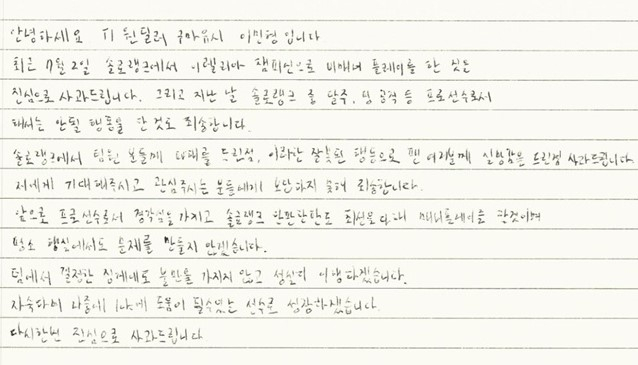 안녕하세요 T1 원딜러 구마유시 이민형 입니다
최근 11월 2일 솔로랭크에서 이렐리아 챔피언으로 비매너 플레이를 한 것은
진심으로 사과드립니다. 그리고 지난 날 솔로랭크 중 탈주, 팀 공격 등 프로선수로서
해서는 안될 행동을 한 것도 죄송합니다.
솔로랭크에서 팀원 분들께 피해를 드린점, 이러한 잘못된 행동으로 팬 여러분께 실망감을 드린점 사과드립니다.
저에게 기대해주시고 관심주시는 분들에게 보답하지 못해 죄송합니다.
앞으로 프로선수로서 경각심을 가지고 솔로랭크 한판한판도 최선을 다해 매너플레이를 할것이며
평소 행실에서도 문제를 만들지 않겠습니다.
팀에서 결정한 징계에도 불만을 가지지 않고 성실히 이행하겠습니다.
자숙하며 나중에 팀에 도움이 될수있는 선수로 성장하겠습니다.
다시한번 진심으로 사과드립니다